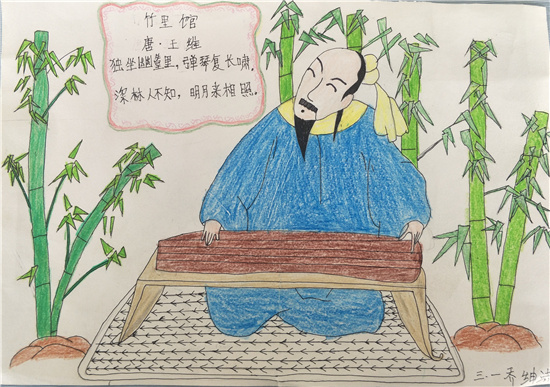 竹里馆
唐·王维
独坐幽篁里,弹琴复长啸。
深林人不知,明月来相照。
三.一